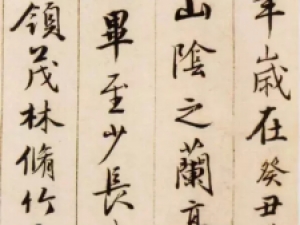 年歲在癸丑
山陰之蘭亭
畢至少長
領茂林脩竹